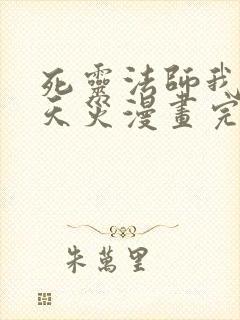 死靈法師我
天災漫畫完
朱萬里